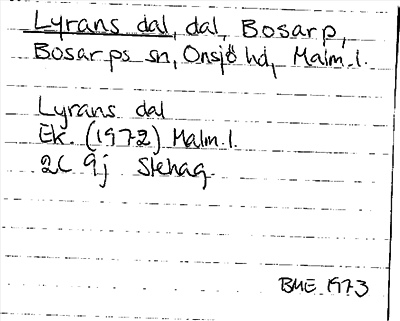 Lyrans dal, dal, Bosarp,
Bosarps sn, Onsjö hd, Malm.l.
Lyrans dal
Ek. (1972) Malm.l.
2C 9j Stehag
BME 1973